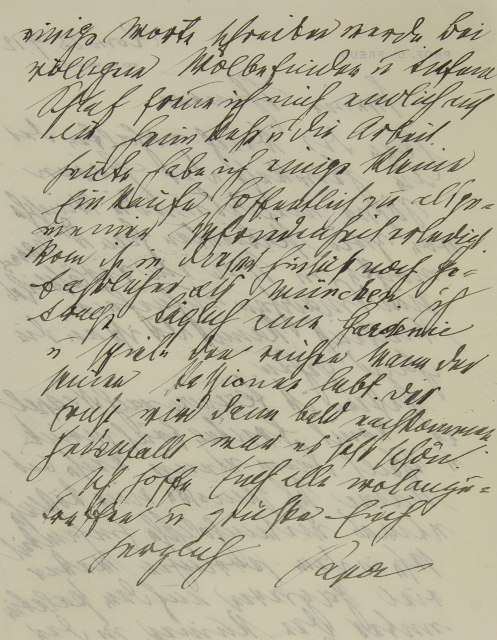 einige Worte schreiben werde. Bei
völligem Wolbefinden u tiefem
Schlaf freue ich mich endlich auf
die Heimkehr u die Arbeit.
Heute habe ich einige kleine
Einkäufe hoffentlich zu allge-
meiner Zufriedenheit erledigt
Rom ist in dieser Hinsicht noch ge-
fährlicher als München. Ich
trage täglich eine Gardenie
u spiele den reichen Mann der
seinen Passionen lebt. Der
Ernst wird dann bald nachkommen
Jedenfalls war es sehr schön.
Ich hoffe Euch alle wol anzu-
treffen u grüße Euch
herzlich Papa